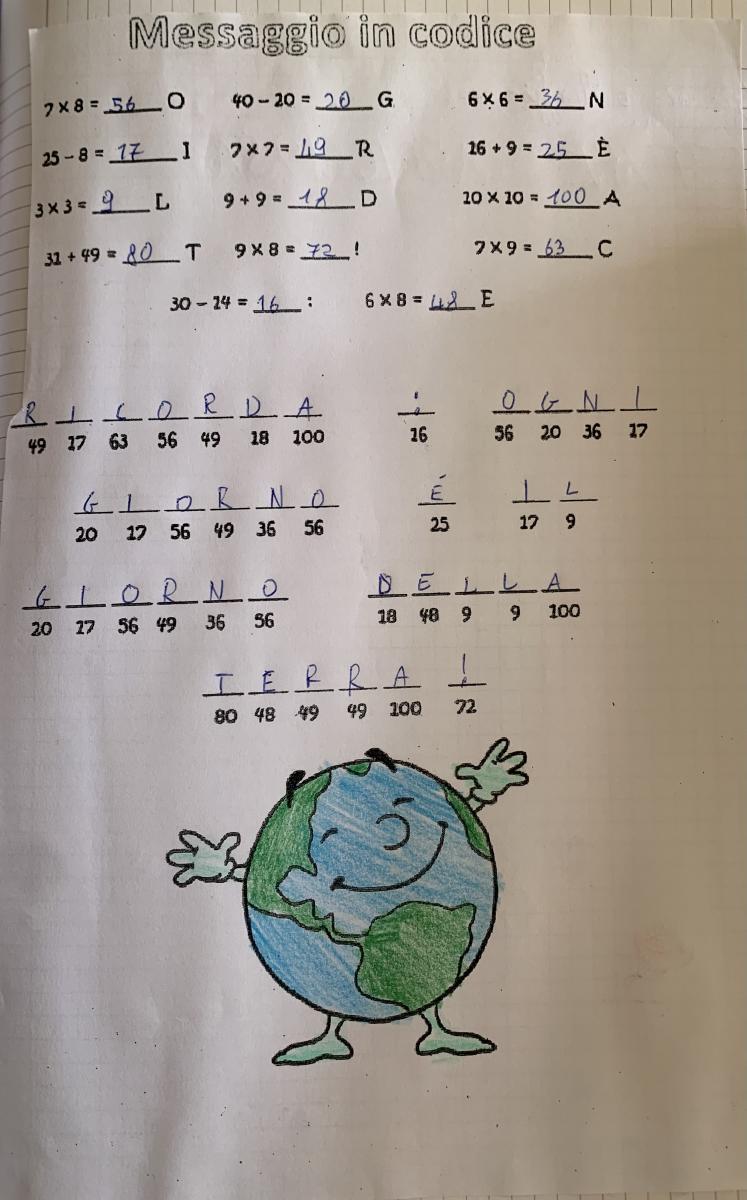 Messaggio in codice
7 x 8 = 56 O 40 - 20 = 20 G 6 x 6 = 36 N
25 - 8 = 17 I 7 x 7 = 49 R 16 + 9 = 25 È
3 x 3 = 9 L 9 + 9 = 18 D 10 x 10 = 100 A
31 + 49 = 80 T 9 x 8 = 72 ! 7 x 9 = 63 C
30 - 14 = 16 : 6 x 8 = 48 E
R I C O R D A : O G N I
49 17 63 56 49 18 100 16 56 20 36 17
G I O R N O É I L
20 17 56 49 36 56 25 17 9
G I O R N O D E L L A
20 17 56 49 36 56 18 48 9 9 100
T E R R A !
80 48 49 49 100 72